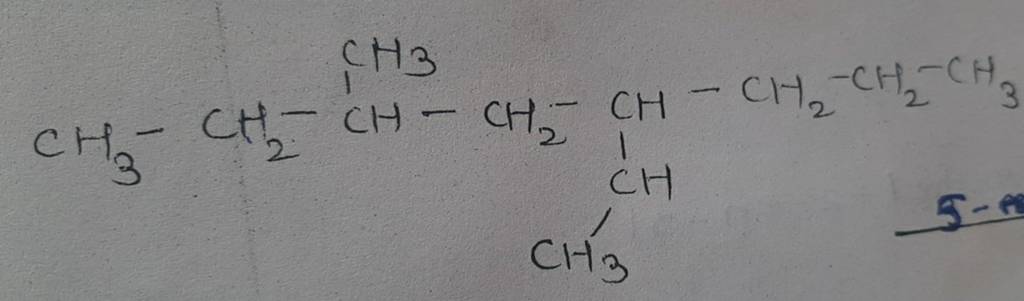 CH3
CH3 - CH2 - CH - CH2 - CH - CH2 - CH2 - CH3
CH
CH3
5-